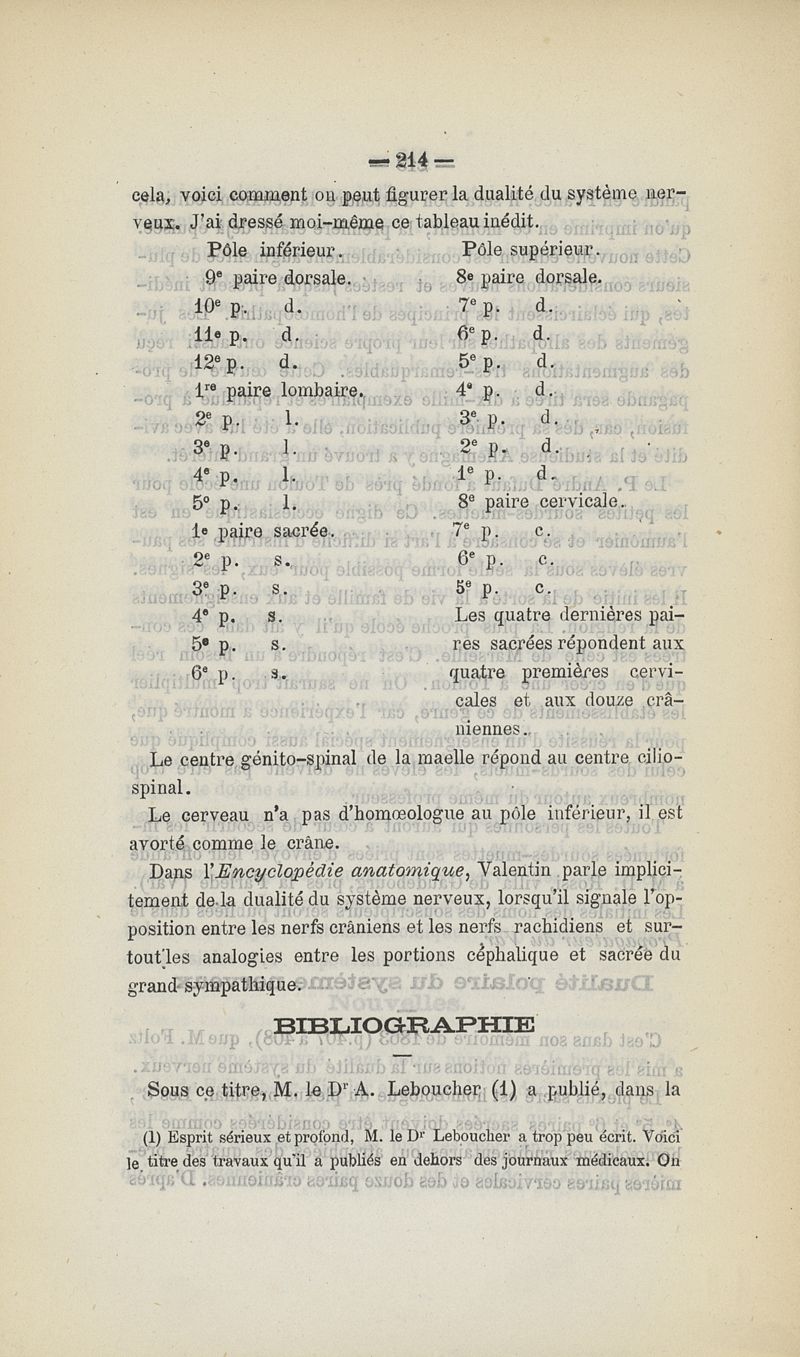 — 214 —
cela, voici comment on peut figurer la dualité du système ner-
veux. J'ai dressé moi-même ce tableau inédit.
Pôle inférieur. Pôle supérieur.
9e paire dorsale. 8e paire dorsale.
10e p. d. 7e p. d.
11e p. d. 6e p. d.
12e p. d. 5e p. d.
1re paire lombaire. 4e p. d.
2e p. l. 3e p. d.
3e p. l. 2e p. d.
4e p. l. 1e p. d.
5e p. l. 8e paire cervicale.
1e paire sacrée. 7e p. c.
2e p. s. 6e p. c.
3e p. s. 5e p. c.
4e p. s. Les quatre dernières pai-
5e p. s. res sacrées répondent aux
6e p. s. quatre premières cervi-
cales et aux douze crâ-
niennes.
Le centre génito-spinal de la maelle répond au centre cilio-
spinal.
Le cerveau n'a pas d'homœologue au pôle inférieur, il est
avorté comme le crâne.
Dans l'Encyclopédie anatomique, Valentin parle implici-
tement de la dualité du système nerveux, lorsqu'il signale l'op-
position entre les nerfs crâniens et les nerfs rachidiens et sur-
tout les analogies entre les portions céphalique et sacrée du
grand sympathique.
BIBLIOGRAPHIE
Sous ce titre, M. le Dr A. Leboucher (1) a publié, dans la
(1) Esprit sérieux et profond, M. le Dr Leboucher a trop peu écrit. Voici
le titre des travaux qu'il a publiés en dehors des journaux médicaux. On